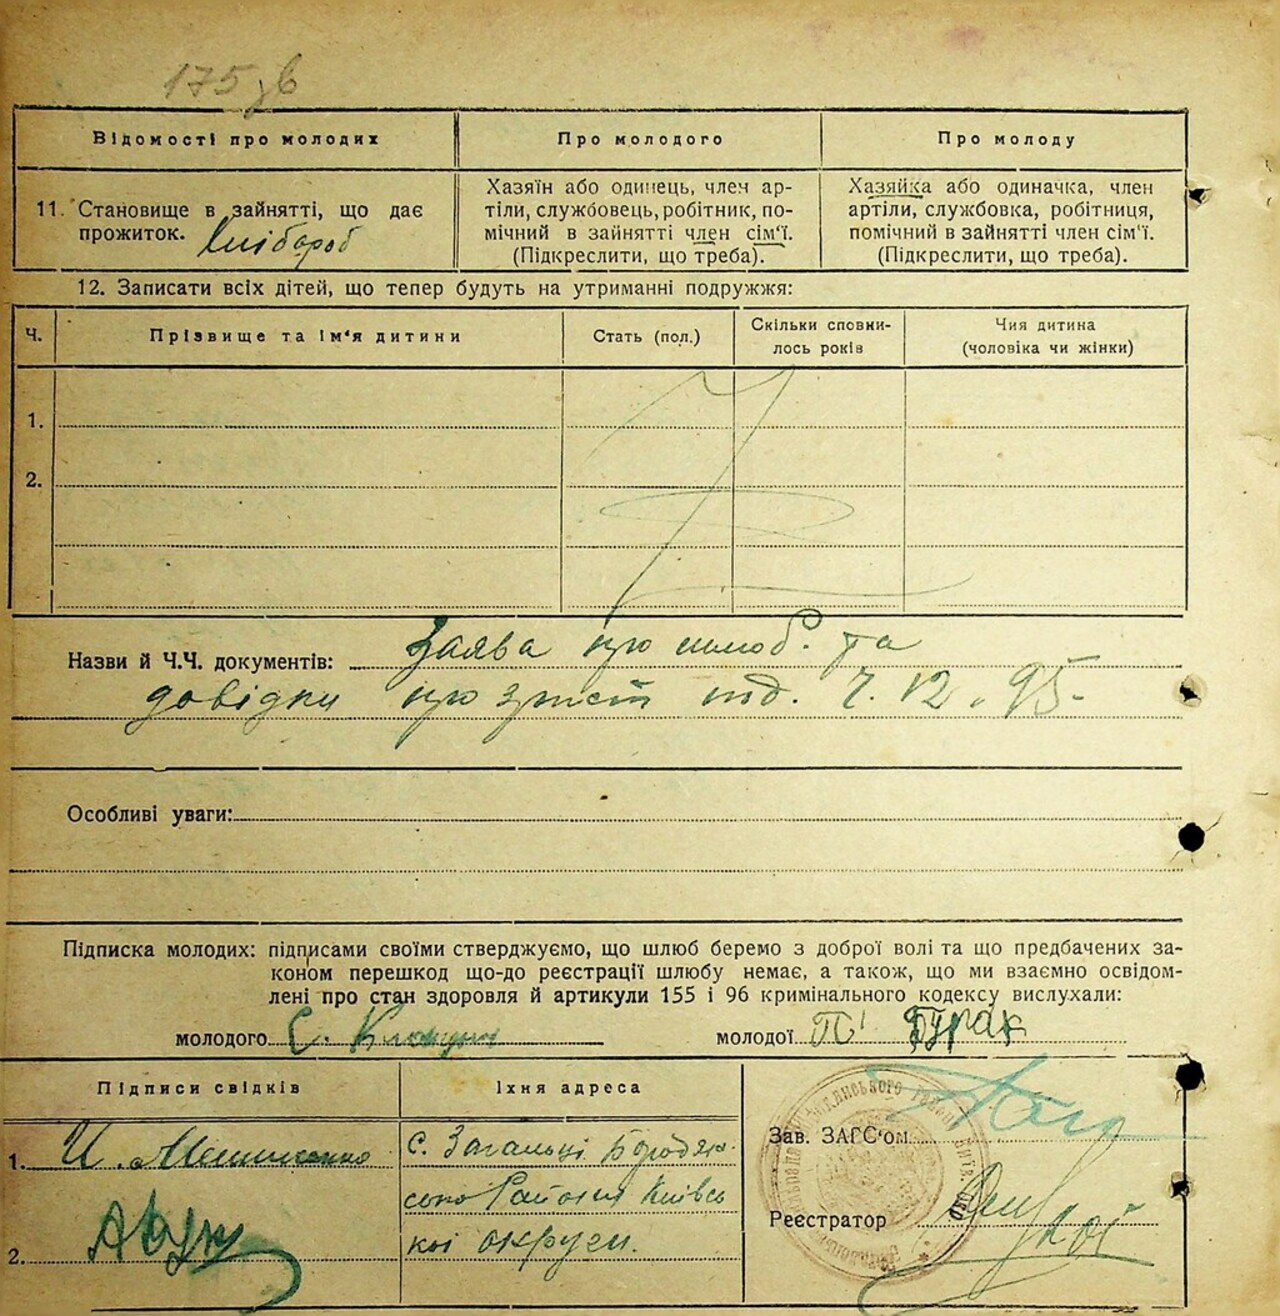 175 зв
Відомості про молодих
Про молодого
Про молоду
11. Становище в зайнятті, що дає
прожиток. Хлібороб
Хазяїн або одинець, член ар-
тілі, службовець, робітник, по-
мічний в зайнятті член сім'ї.
(Підкреслити, що треба).
Хазяйка або одиначка, член
артілі, службовка, робітниця,
помічний в зайнятті член сім'ї.
(Підкреслити, що треба).
12. Записати всіх дітей, що тепер будуть на утриманні подружжя:
Ч.
Прізвище та ім'я дитини
Стать (пол.)
Скільки сповни-
лось років
Чия дитина
(чоловіка чи жінки)
1.
2.
Назви й Ч.Ч. документів: Заява про шлюб. та
довідки про зміст під. Ч. 12. 95-
Особливі уваги:
Підписка молодих: підписами своїми стверджуємо, що шлюб беремо з доброї волі та що предбачених за-
коном перешкод що-до реєстрації шлюбу немає, а також, що ми взаємно освідом-
лені про стан здоровля й артикули 155 і 96 кримінального кодексу вислухали:
молодого С.
молодої П Бурак
Підписи свідків
Їхня адреса
1. И.
с. Загальці Бородян-
ського Району Київсь
кої округи.
2.
Зав. ЗАГС'ом
Реєстратор